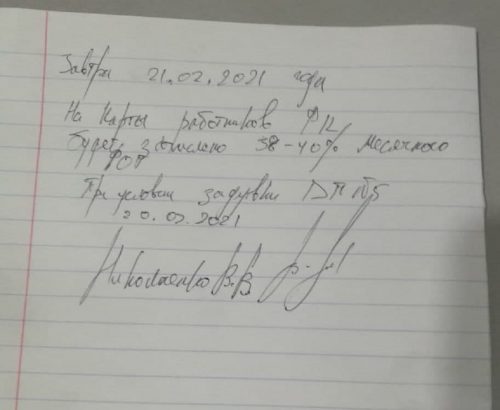 Завтра 21.02.2021 года
На карты работников ФК
будет зачислено 38-40% месячного
ФОТ
При условии задувки ДП №5
20.02.2021
Николаенко В.В